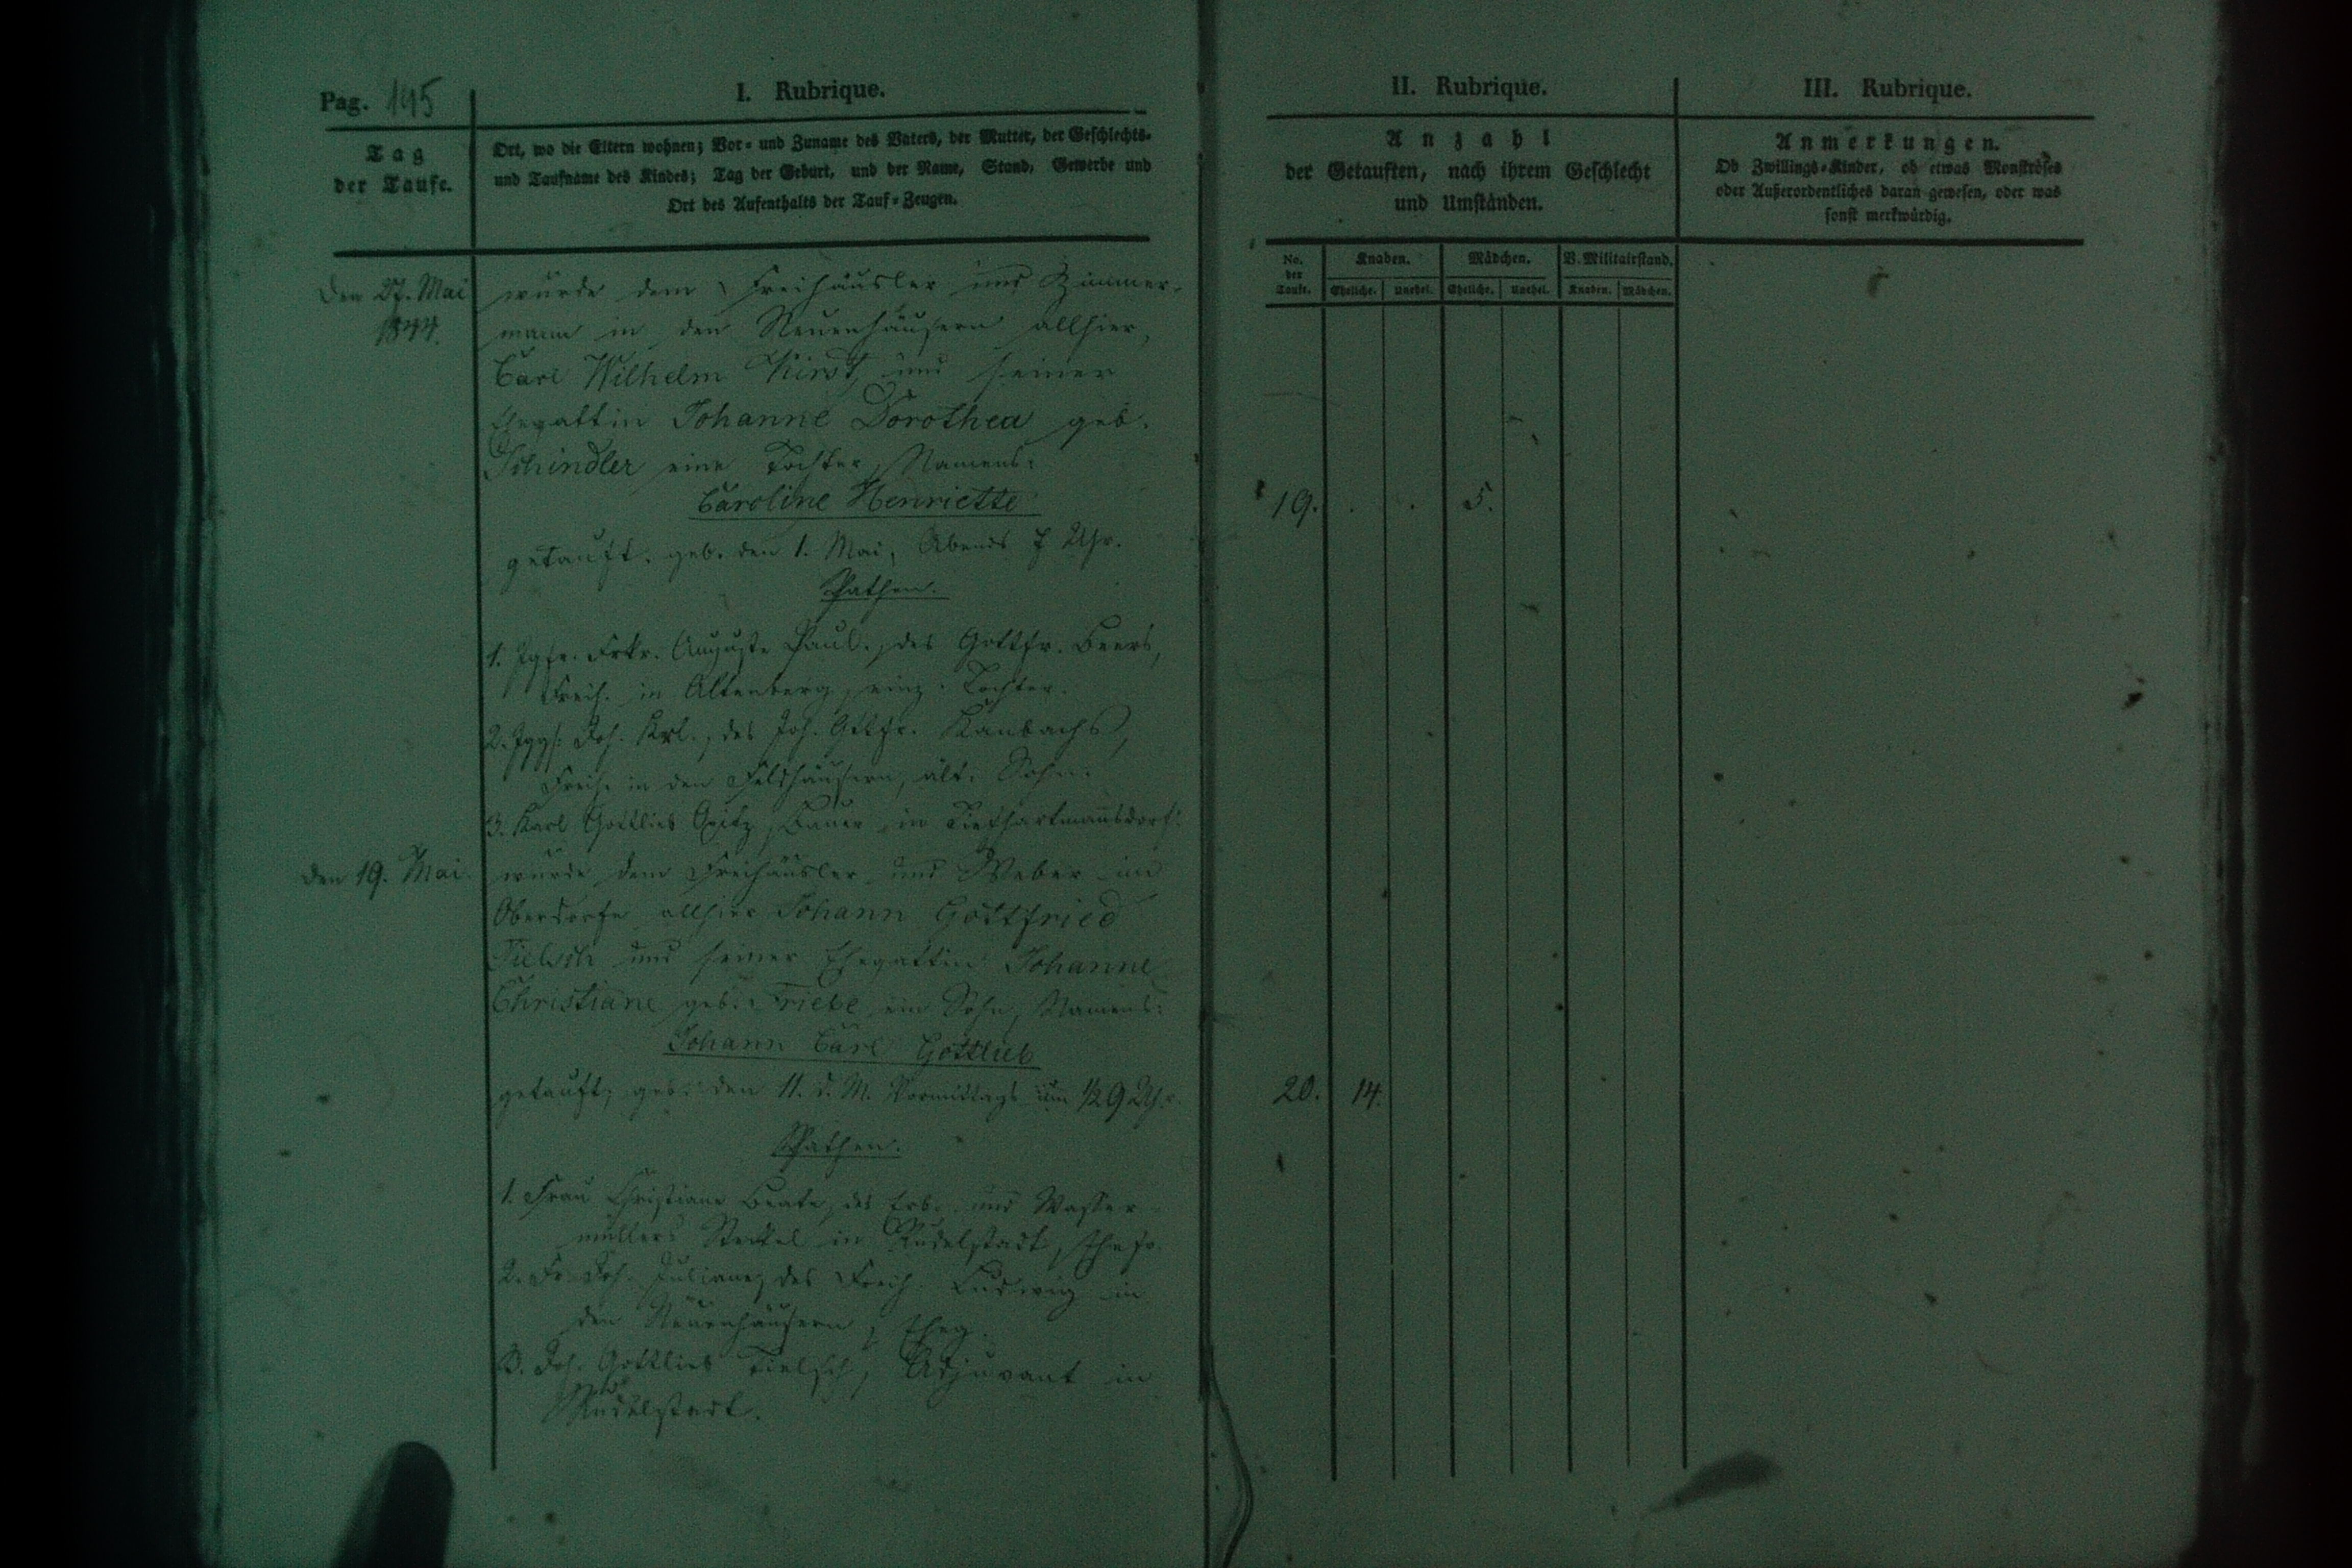 Pag. 195
I. Rubrique.
Tag
der Taufe.
Ort, wo die Eltern wohnen; Vor- und Zuname des Vaters, der Mutter, der Geschlechts-
und Taufname des Kindes; Tag der Geburt, und der Name, Stand, Gewerbe und
Ort des Aufenthalts der Tauf-Zeugen.
Den 27. Mai
1844.
wurde dem Freihäusler und Zimmer-
mann in den Neuenhäusern allhier,
Carl Wilhelm und seiner
Ehegattin Johanne Dorothea geb.
Schindler eine Tochter, Namens:
Caroline Henriette
getauft. geb. den 1. Mai, Abends 7 Uhr.
Pathen.
1. Igfr. Frkr. Auguste Paul., des Gottfr. Beers,
Freih. in Altenberg, einz. Tochter.
2. Jggs. Joh. Krl., des Joh. Gttfr. Kanbachs,
Freih. in den Feldhäusern, ält. Sohn.
3. Karl Gottlieb Opitz, Bauer in Tiefhartmannsdorf.
den 19. Mai.
wurde dem Freihäusler und Weber im
Oberdorfe allhier Johann Gottfried
Tielsch und seiner Ehegattin Johanne
Christiane geb. Friebe ein Sohn, Namens:
Johann Carl Gottlieb
getauft, geb. den 11. d. M. Vormittags um 1/2 9 Uhr.
Pathen.
1. Frau Christiane Beate, des Erb- und Wasser-
müllers in Rudelstadt, Ehefr.
2. Fr. Joh. Juliane, des Freih. Ludwig in
den Neuenhäusern, Eheg.
3. Joh. Gottlieb Tielsch, Adjuvant in
Rudelstadt.
II. Rubrique.
Anzahl
der Getauften, nach ihrem Geschlecht
und Umständen.
No. der Taufe.
Knaben.
Mädchen.
V. Militairstand.
Eheliche. Unehel. Eheliche. Unehel. Knaben. Mädchen.
19. . . 5.
20. 14.
III. Rubrique.
Anmerkungen.
Ob Zwillings-Kinder, ob etwas Monströses
oder Außerordentliches daran gewesen, oder was
sonst merkwürdig.